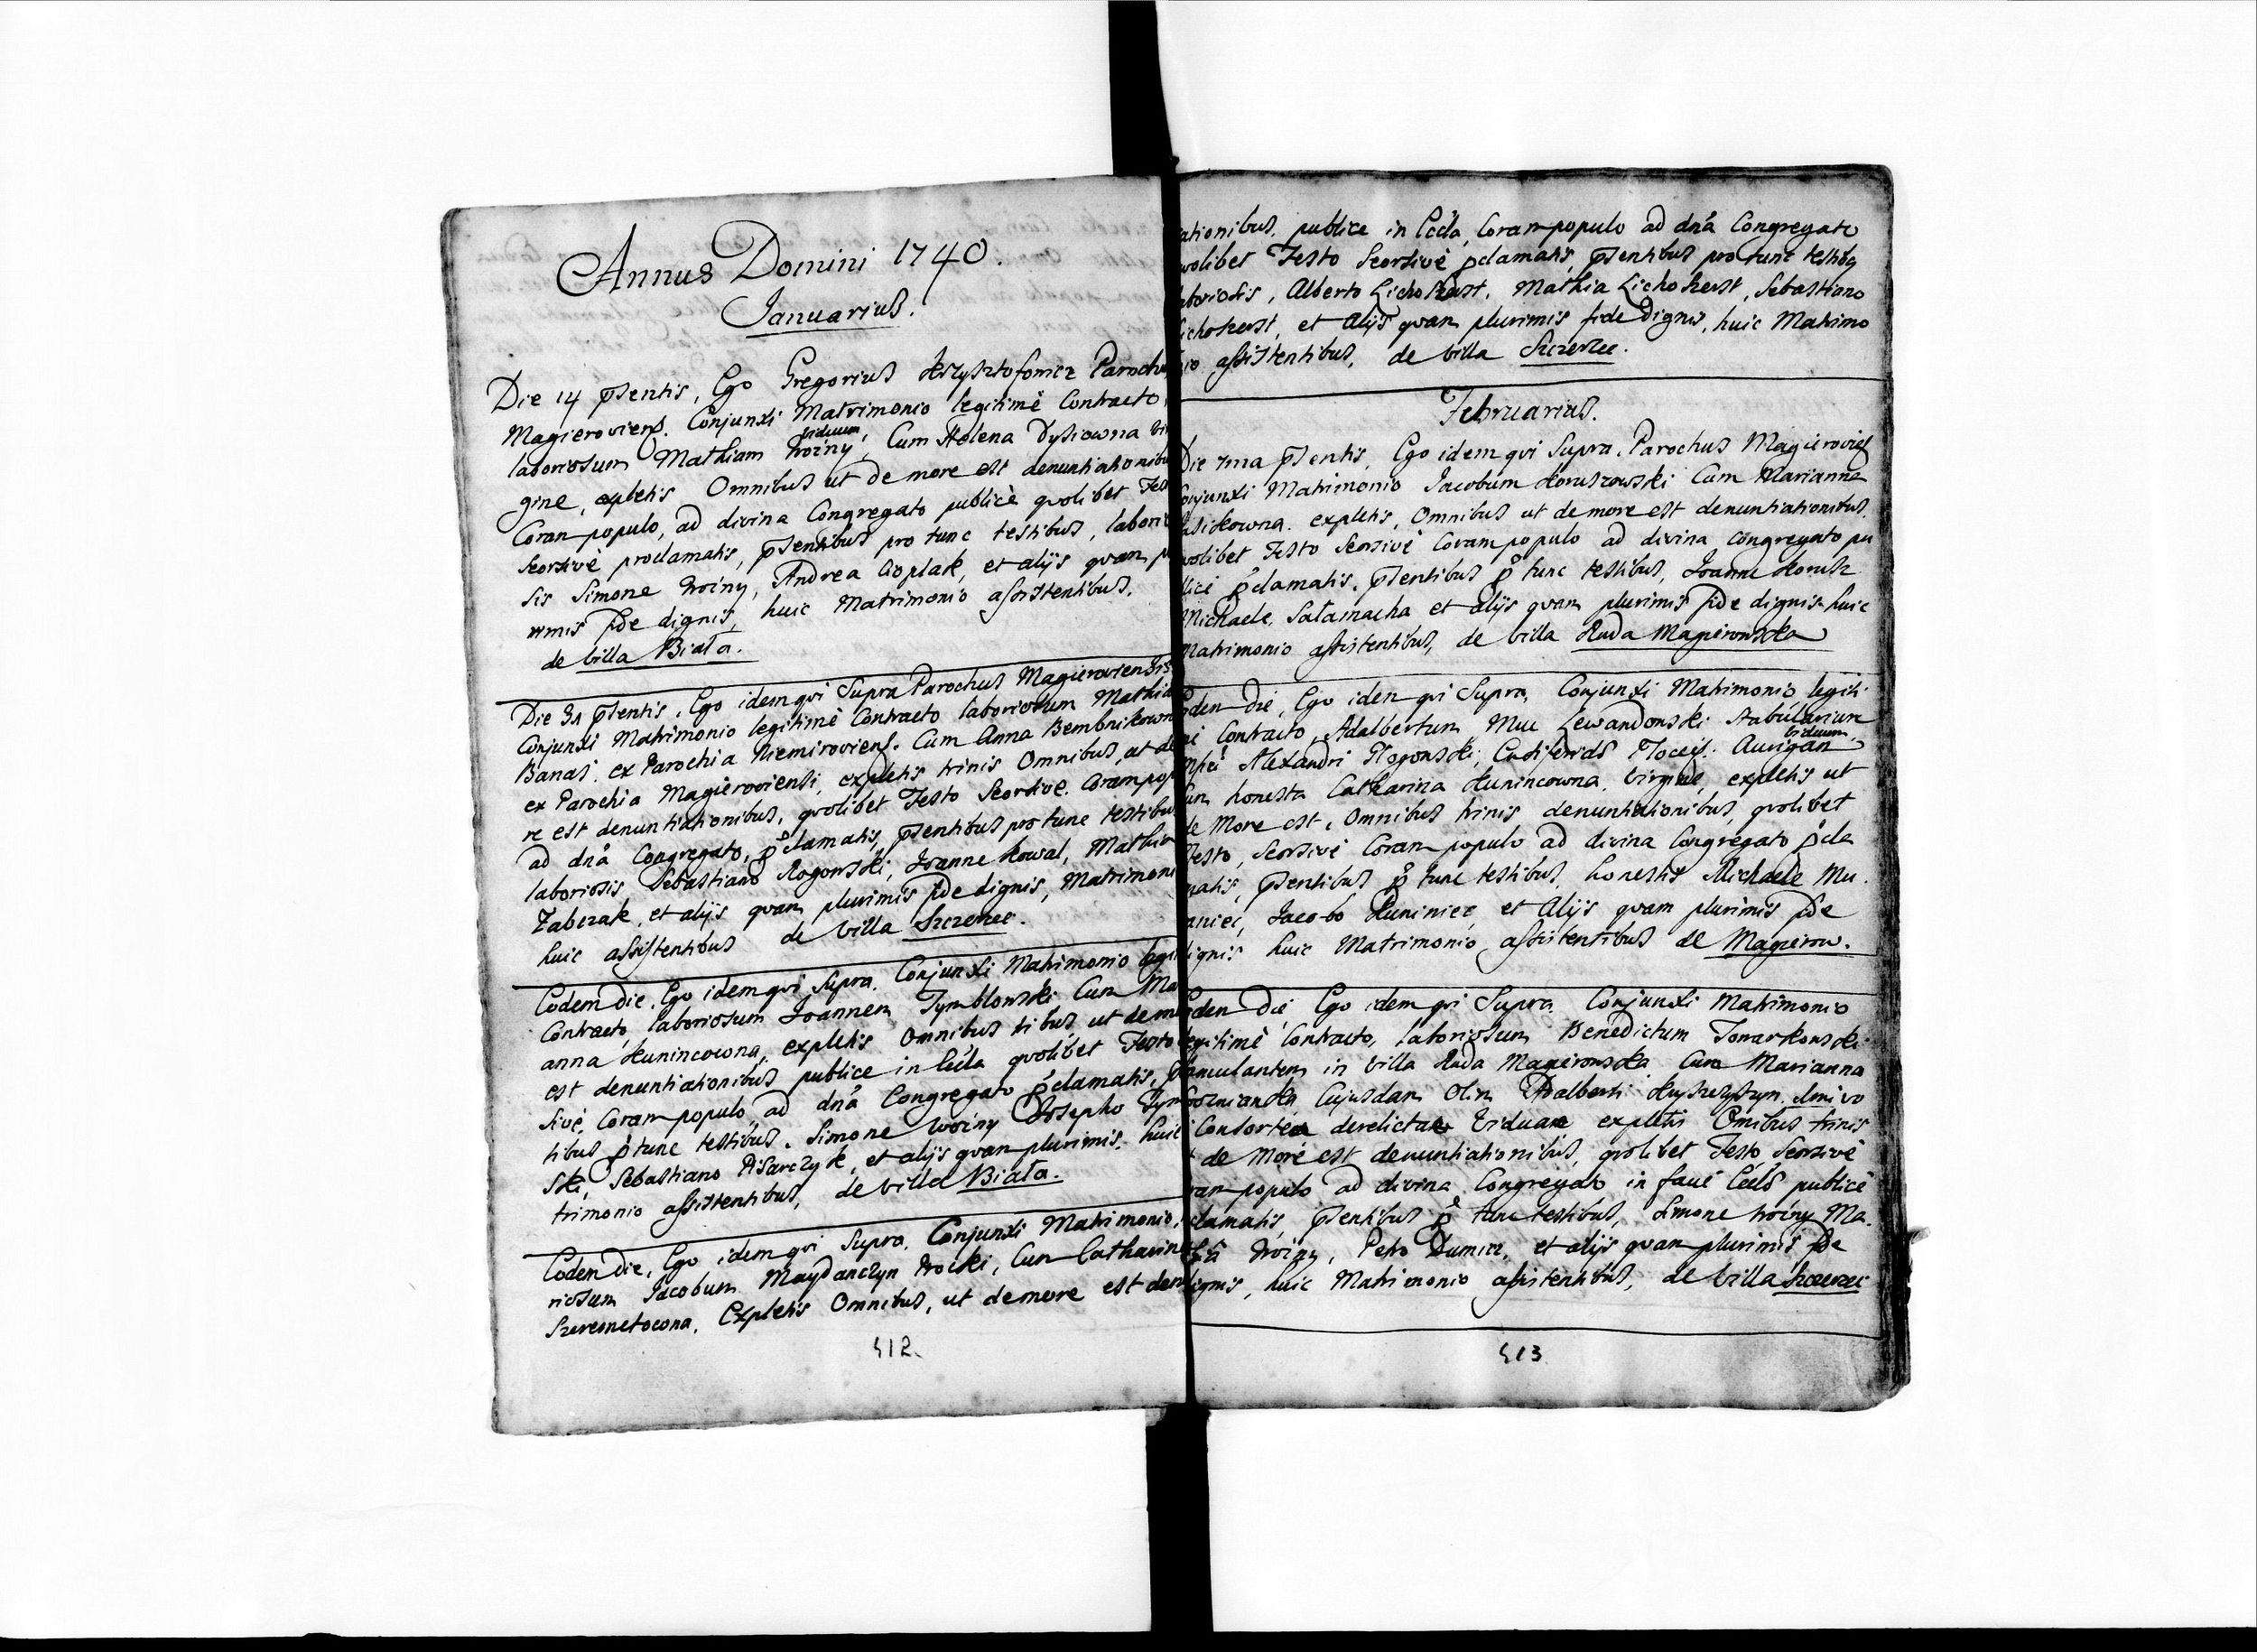 Annus Domini 1740.
Januarius.
Die 14 pntis, Ego Gregorius Krzysztofowicz Paroch
Magieroviens. Conjunxi Matrimonio legitimè Contracto,
viduum
laboriosum Mathiam Woźny, Cum Helena Dysiowna vir
gine, expletis Omnibus ut de more est denuntiationibu
Coram populo, ad divina Congregato publicè qvolibet Fest
Seorsivè proclamatis, pntibus pro tunc testibus, laborio
sis Simone Woźny, Andrea Cioplak, et alijs qvam pl
rimis fide dignis, huic Matrimonio assistentibus.
de villa Biała.
Die 31 pntis. Ego idem qvi Supra Parochus Magieroviensis
Conjunxi Matrimonio legitimè Contracto laboriosum Mathia
Banaś. ex Parochia Niemiroviens. Cum Anna Bembnikown
ex Parochia Magieroviensi, expletis trinis Omnibus, ut de
re est denuntiationibus, qvolibet Festo Seorsive. Coram pop
ad dna Congregato, pclamatis, pntibus pro tunc testibus
laboriosis Sebastiano Rogowski, Joanne Kowal, Mathia
Zabczak, et alijs qvam plurimis fide dignis, Matrimoni
huic assistentibus de villa Szczerzec.
Eodem die, Ego idem qvi Supra. Conjunxi Matrimonio legi
Contracto, laboriosum Joannem Tymblowski Cum Ma
anna Kunincowna, expletis Omnibus tibus ut de m
est denuntiationibus publice in Ecclia qvolibet Festo
sivè, Coram populo, ad dna Congregato pclamatis, p
tibus p tunc testibus. Simone Woźny Josepho Tym
ski, Sebastiano Pisarczyk, et alijs qvam plurimis. huic
trimonio assistentibus, de villa Biała.
Eodem die, Ego idem qvi Supra. Conjunxi Matrimonio,
riosum Jacobum Maydanczyn Wocki, Cum Catharin
Szeremetowna. Expletis Omnibus, ut de more est den
412.
ationibus, publice in Ecclia, Coram populo ad dna Congregato
volibet Festo Seorsivè pclamatis, pntibus pro tunc testibq
aboriosis, Alberto Lichokerst, Mathia Lichokerst, Sebastiano
ichokerst, et Alijs qvam plurimis fide dignis, huic Matrimo
nio assistentibus, de villa Szczerzec.
Februarius.
Die 7ma pntis, Ego idem qvi Supra. Parochus Magierovies
onjunxi Matrimonio Jacobum Koruszowski Cum Marianna
asickowna. expletis, Omnibus ut de more est denuntiationibus.
volibet Festo Seorsivè Coram populo ad divina Congregato pu
lice pclamatis. pntibus p tunc testibus, Joanne Korusz
Michaele, Sałamacha et alijs qvam plurimis fide dignis huic
Matrimonio assistentibus, de villa Ruda Magierowska
oden die, Ego idem qvi Supra, Conjunxi Matrimonio legiti
mè Contracto, Adalbertum, Lewandowski Stabularium
viduum
Alexandri Płocens. Aurigam
um honesta Catharina Kunincowna, virgine, expletis ut
de More est, Omnibus trinis denuntiationibus, qvolibet
Festo, Seorsivè Coram populo ad divina Congregato pcla
matis, pntibus p tunc testibus, honestis Michaele Mu
aniec, Jacobo Kuniniec, et Alijs qvam plurimis fide
dignis huic Matrimonio, assistentibus de Magierow.
Eoden die Ego idem qvi Supra. Conjunxi Matrimonio
legitimè Contracto, laboriosum Benedictum Towarkowski
amulantem in villa Ruda Magierowska Cum Marianna
Cujusdam Olim Adalberti
Consortea derelictae viduae expletis Omibus trinis
t de Morè est denuntiationibus, qvolibet Festo, Seorsivè
ram populo ad divina Congregato in publicè
clamatis, pntibus p tunc testibus, Simone Woźny Ma
Woźny, Petro Dumicz, et alijs qvam plurimis fide
dignis, huic Matrimonio assistentibus, de villa Szczerzec
413